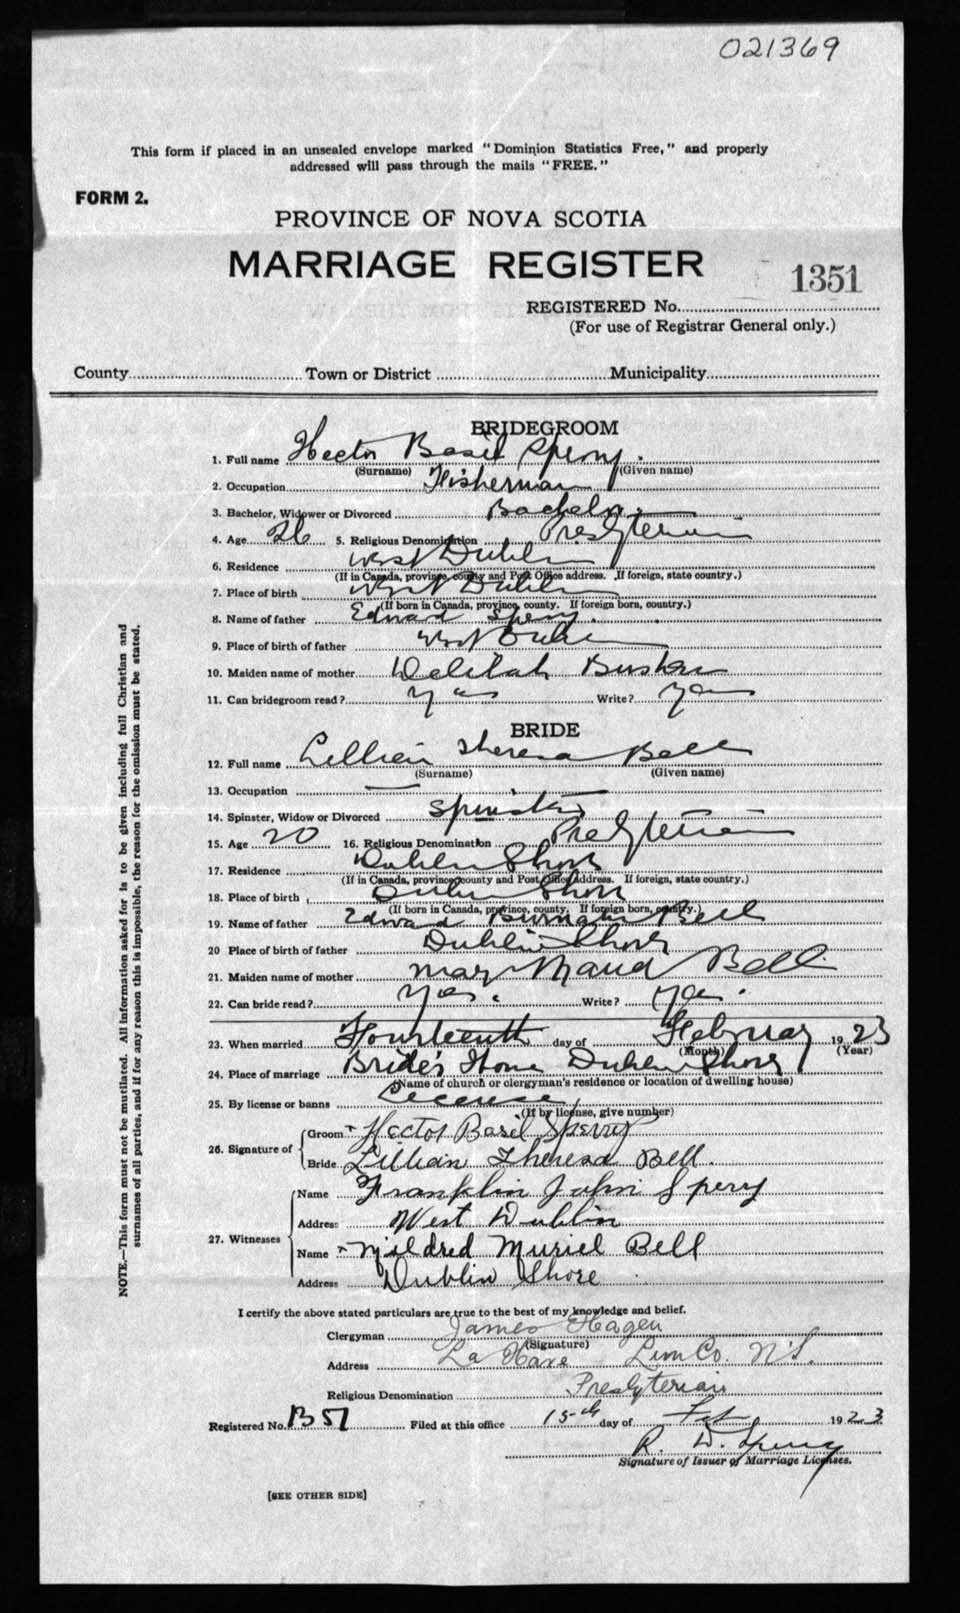 021369
This form if placed in an unsealed envelope marked "Dominion Statistics Free," and properly
addressed will pass through the mails "FREE."
FORM 2.
PROVINCE OF NOVA SCOTIA
MARRIAGE REGISTER
1351
REGISTERED No.
(For use of Registrar General only.)
County Town or District Municipality
BRIDEGROOM
1. Full name Hector Basil Sperry.
(Surname) (Given name)
2. Occupation Fisherman
3. Bachelor, Widower or Divorced Bachelor.
4. Age 26 5. Religious Denomination Presbyterian
6. Residence West Dublin
(If in Canada, province, county and Post Office address. If foreign, state country.)
7. Place of birth West Dublin
(If born in Canada, province, county. If foreign born, country.)
8. Name of father Edward Sperry.
9. Place of birth of father West Dublin
10. Maiden name of mother Delilah
11. Can bridegroom read? Yes Write? Yes
BRIDE
12. Full name Lillian Theresa Bell
(Surname) (Given name)
13. Occupation —
14. Spinster, Widow or Divorced Spinster
15. Age 20 16. Religious Denomination Presbyterian
17. Residence Dublin Shore
(If in Canada, province county and Post Office Address. If foreign, state country.)
18. Place of birth Dublin Shore
(If born in Canada, province, county. If foreign born, country.)
19. Name of father Edward Bell
20 Place of birth of father Dublin Shore
21. Maiden name of mother May Maud Bell
22. Can bride read? Yes. Write? Yes.
23. When married Fourteenth day of February 1923
(Month) (Year)
24. Place of marriage Bride's Home Dublin Shore
(Name of church or clergyman's residence or location of dwelling house)
25. By license or banns License
(If by license, give number)
26. Signature of
Groom Hector Basil Sperry
Bride Lillian Theresa Bell.
27. Witnesses
Name Franklin John Sperry
Address West Dublin
Name Mildred Muriel Bell
Address Dublin Shore
I certify the above stated particulars are true to the best of my knowledge and belief.
Clergyman James Hagen
(Signature)
Address La Have Lun Co. N.S.
Religious Denomination Presbyterian
Registered No. B 51 Filed at this office 15th day of Feb 1923
R. D. Sperry
Signature of Issuer of Marriage Licenses.
[SEE OTHER SIDE]
NOTE.—This form must not be mutilated. All information asked for is to be given including full Christian and
surnames of all parties, and if for any reason this is impossible, the reason for the omission must be stated.